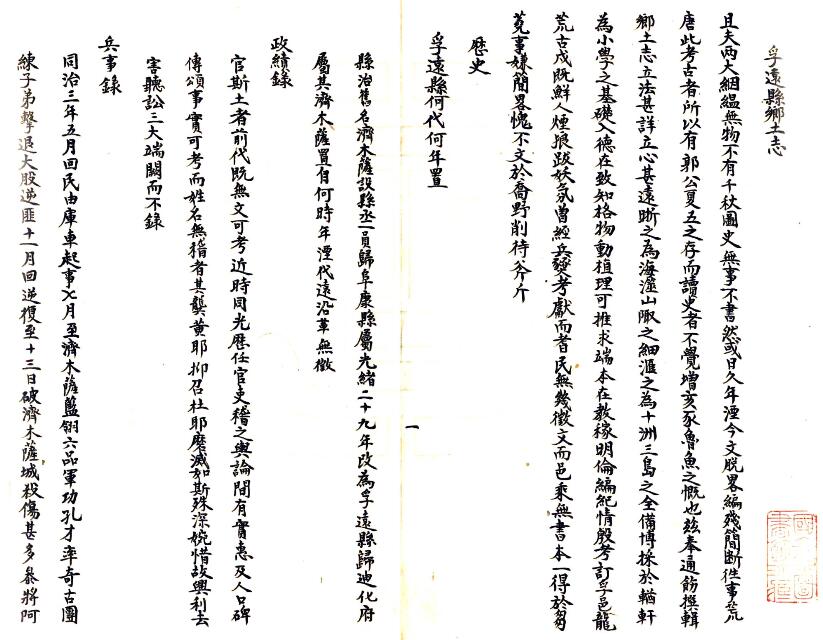 孚遠縣鄉土志
且夫两大絪緼無物不有千秋圖史無事不書然或日久年湮今文脱畧編殘簡断徃事荒
唐此考古者所以有郭公夏五之存而讀史者不覺增亥豕魯魚之慨也兹奉通飭撰輯
鄉土志立法甚詳立心甚遠晰之為海澨山陬之細滙之為十洲三島之全備博採於輶軒
為小學之基礎入德在致知格物動植理可推求端本在教稼明倫編紀情殷考訂孚邑龍
荒古戍既鮮人煙狼跋妖氛曽經兵燹考獻而耆民無幾徵文而邑乘無書本一得於芻
蕘事嫌簡畧愧不文於喬野削待斧斤
歷史
孚遠縣何代何年置
縣治舊名濟木薩設縣丞一員歸阜康縣屬光緒二十九年改為孚遠縣歸迪化府
屬其濟木薩置自何時年湮代遠沿革無徵
政績錄
官斯土者前代既無文可考近時同光歷任官吏稽之輿論間有實惠及人口碑
傳頌事實可考而姓名無稽者其龔黄耶抑召杜耶磨滅如斯殊深婉惜故興利去
害聽訟三大端闕而不錄
兵事錄
同治三年五月回民由庫車起事七月至濟木薩藍翎六品軍功孔才率奇古團
練子弟擊退大股逆匪十一月回逆復至十三日破濟木薩城殺傷甚多叅將阿
一